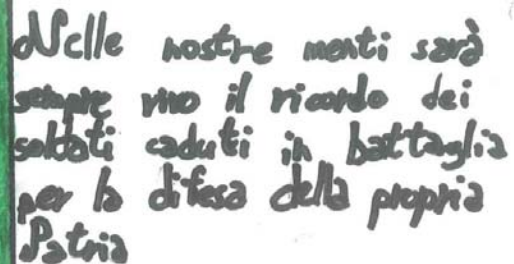 Nelle nostre menti sarà
sempre vivo il ricordo dei
soldati caduti in battaglia
per la difesa della propria
Patria